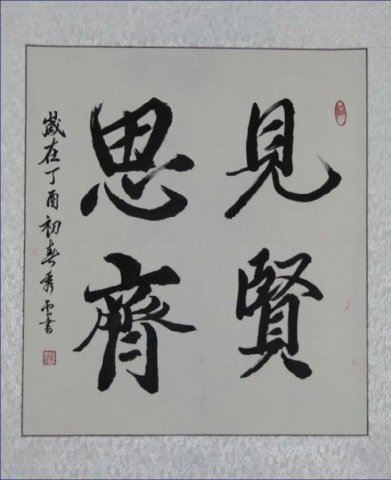 見賢
思齊
歲在丁酉初春秀雲書